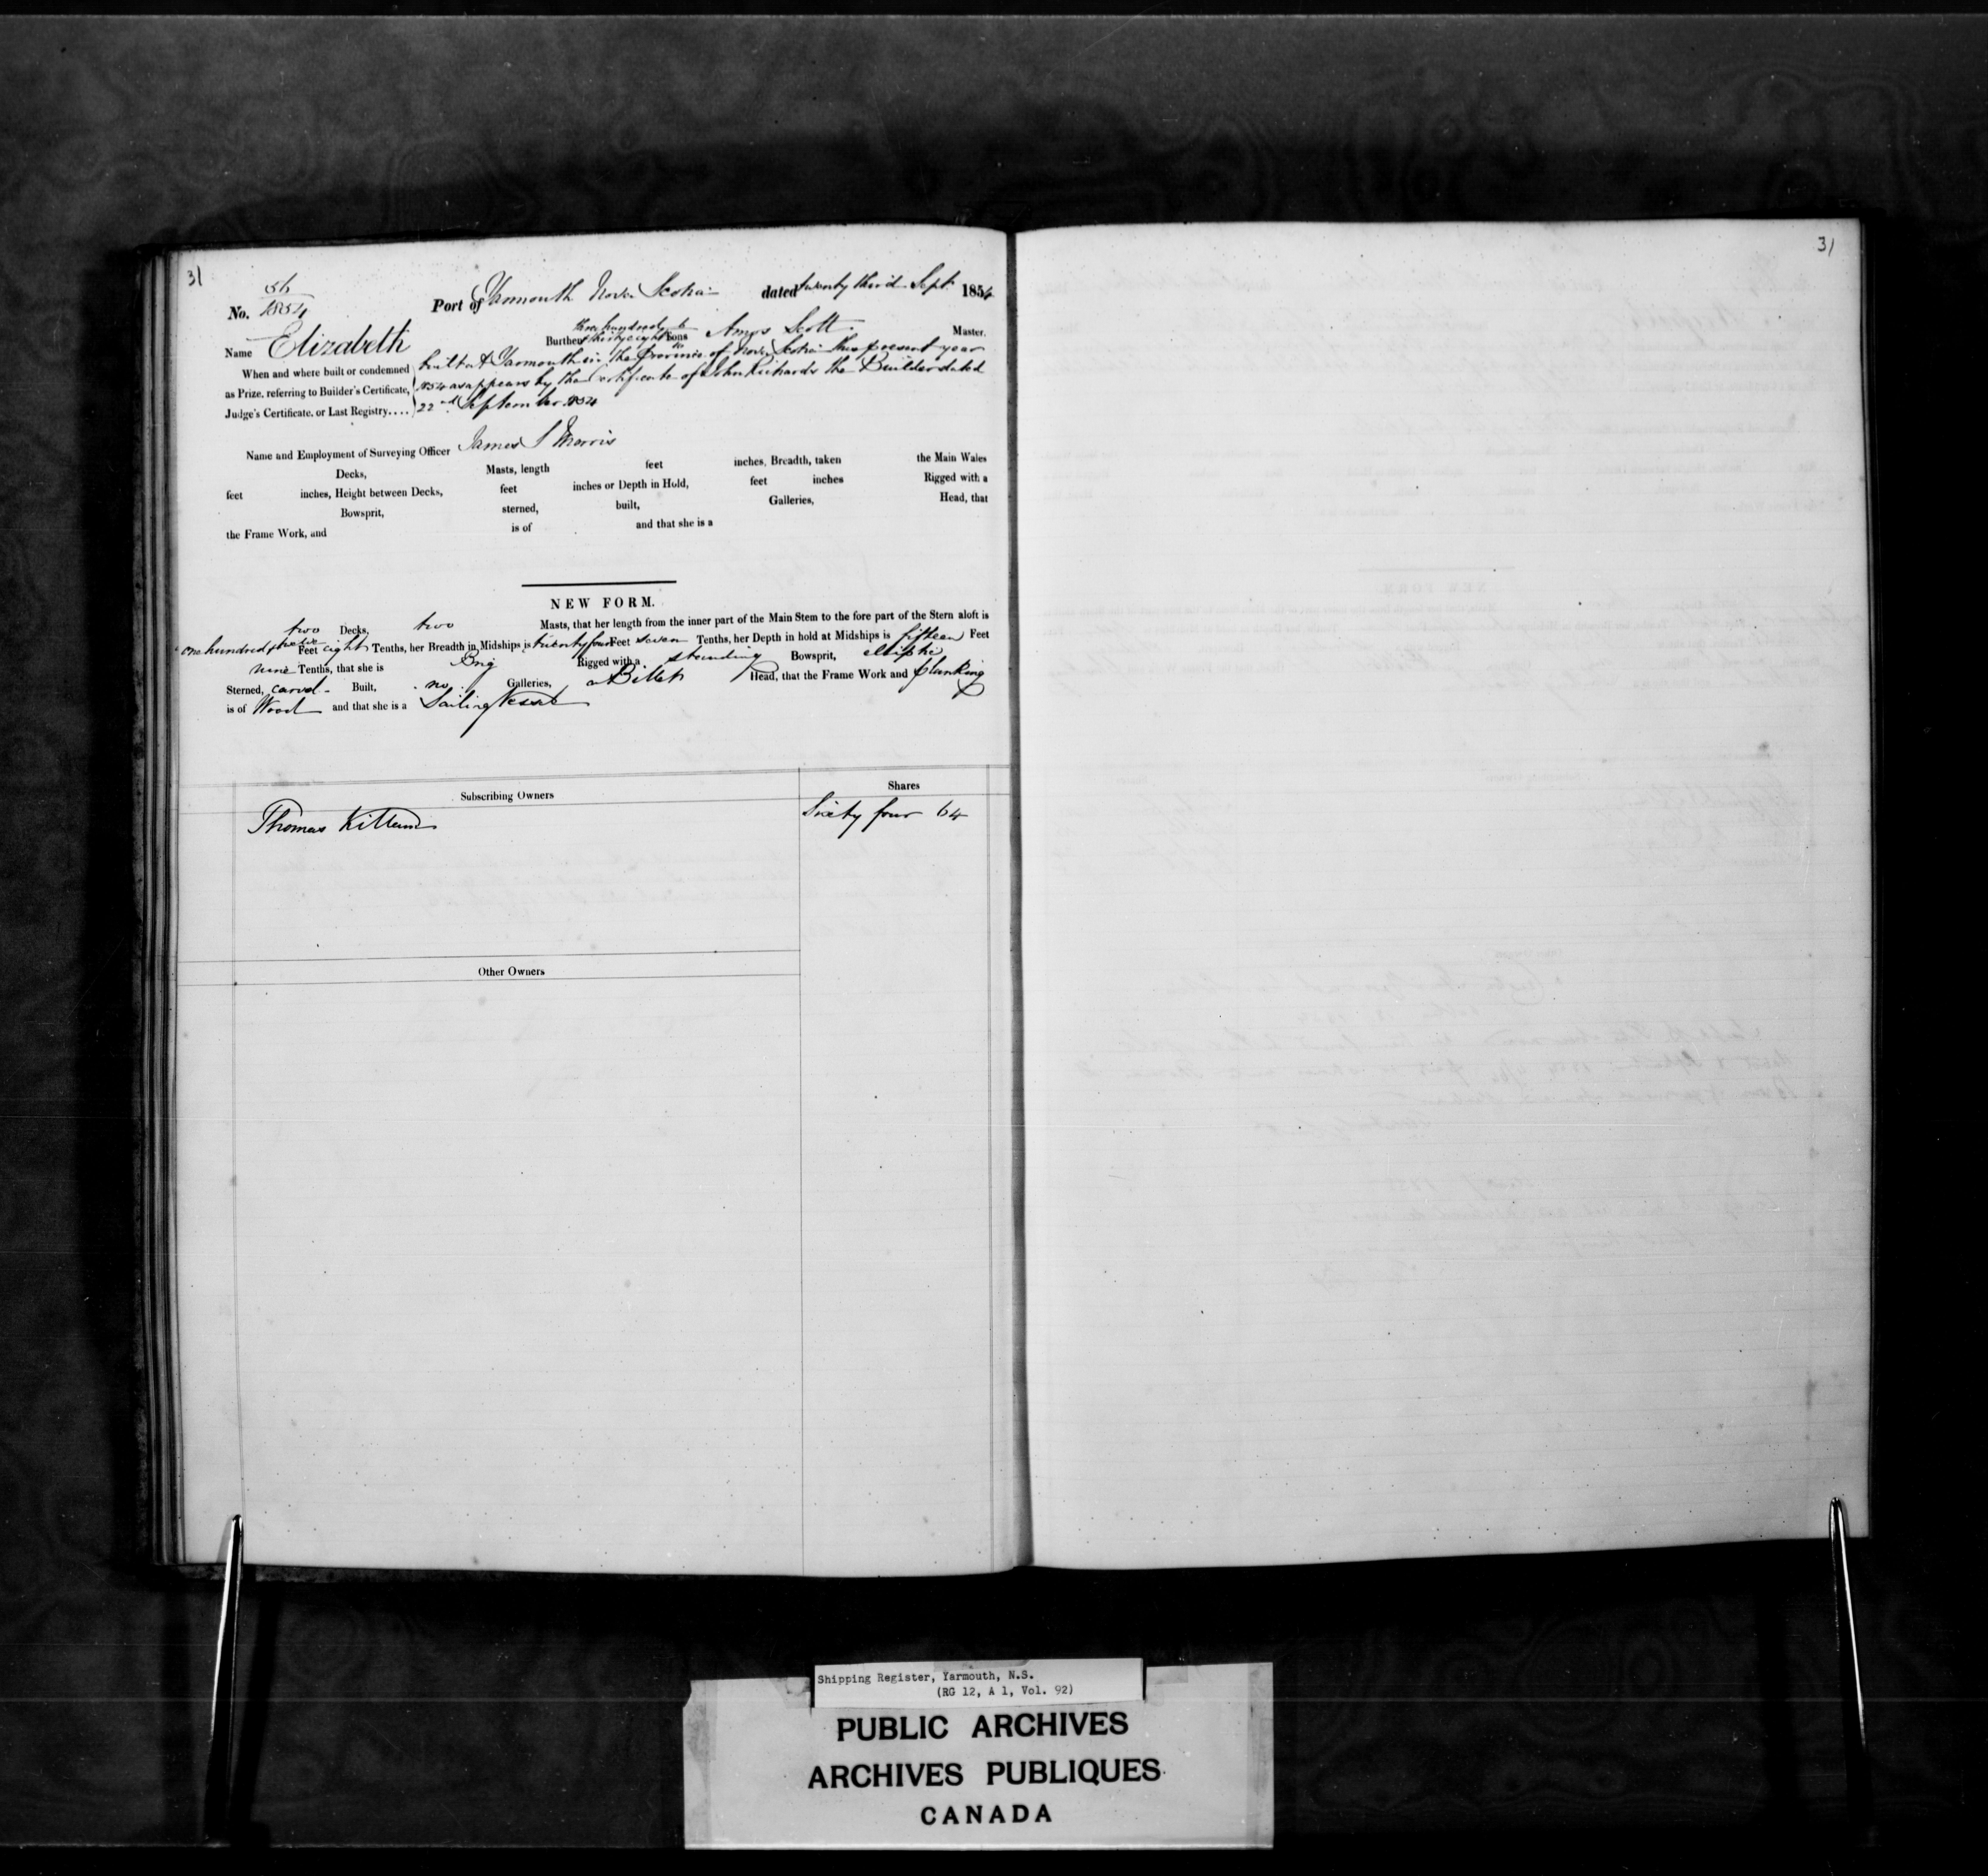 31
No. 36/1854 Port of Yarmouth Nova Scotia dated twenty third Sept 1854
three hundred &
Name Elizabeth Burthen thirty eight Tons Amos Scott Master.
When and where built or condemned built at Yarmouth in the Province of Nova Scotia this present year
as Prize, referring to Builder's Certificate, 1854 as appears by the Certificate of John Richards the Builder dated
Judge's Certificate, or Last Registry.... 22nd September 1854
Name and Employment of Surveying Officer James S Morris
Decks, Masts, length feet inches, Breadth, taken the Main Wales
feet inches, Height between Decks, feet inches or Depth in Hold, feet inches Rigged with a
Bowsprit, sterned, built, Galleries, Head, that
the Frame Work, and is of and that she is a
NEW FORM.
two Decks, two Masts, that her length from the inner part of the Main Stem to the fore part of the Stern aloft is
one hundred & twelve Feet eight Tenths, her Breadth in Midships is twenty four Feet seven Tenths, her Depth in hold at Midships is fifteen Feet
nine Tenths, that she is Brig Rigged with a standing Bowsprit, eliptic
Sterned, carvel Built, no Galleries, a Billet Head, that the Frame Work and planking
is of Wood and that she is a Sailing Vessel
Subscribing Owners Shares
Thomas Killam Sixty four 64
Other Owners
31
Shipping Register, Yarmouth, N.S.
(RG 12, A 1, Vol. 92)
PUBLIC ARCHIVES
ARCHIVES PUBLIQUES
CANADA